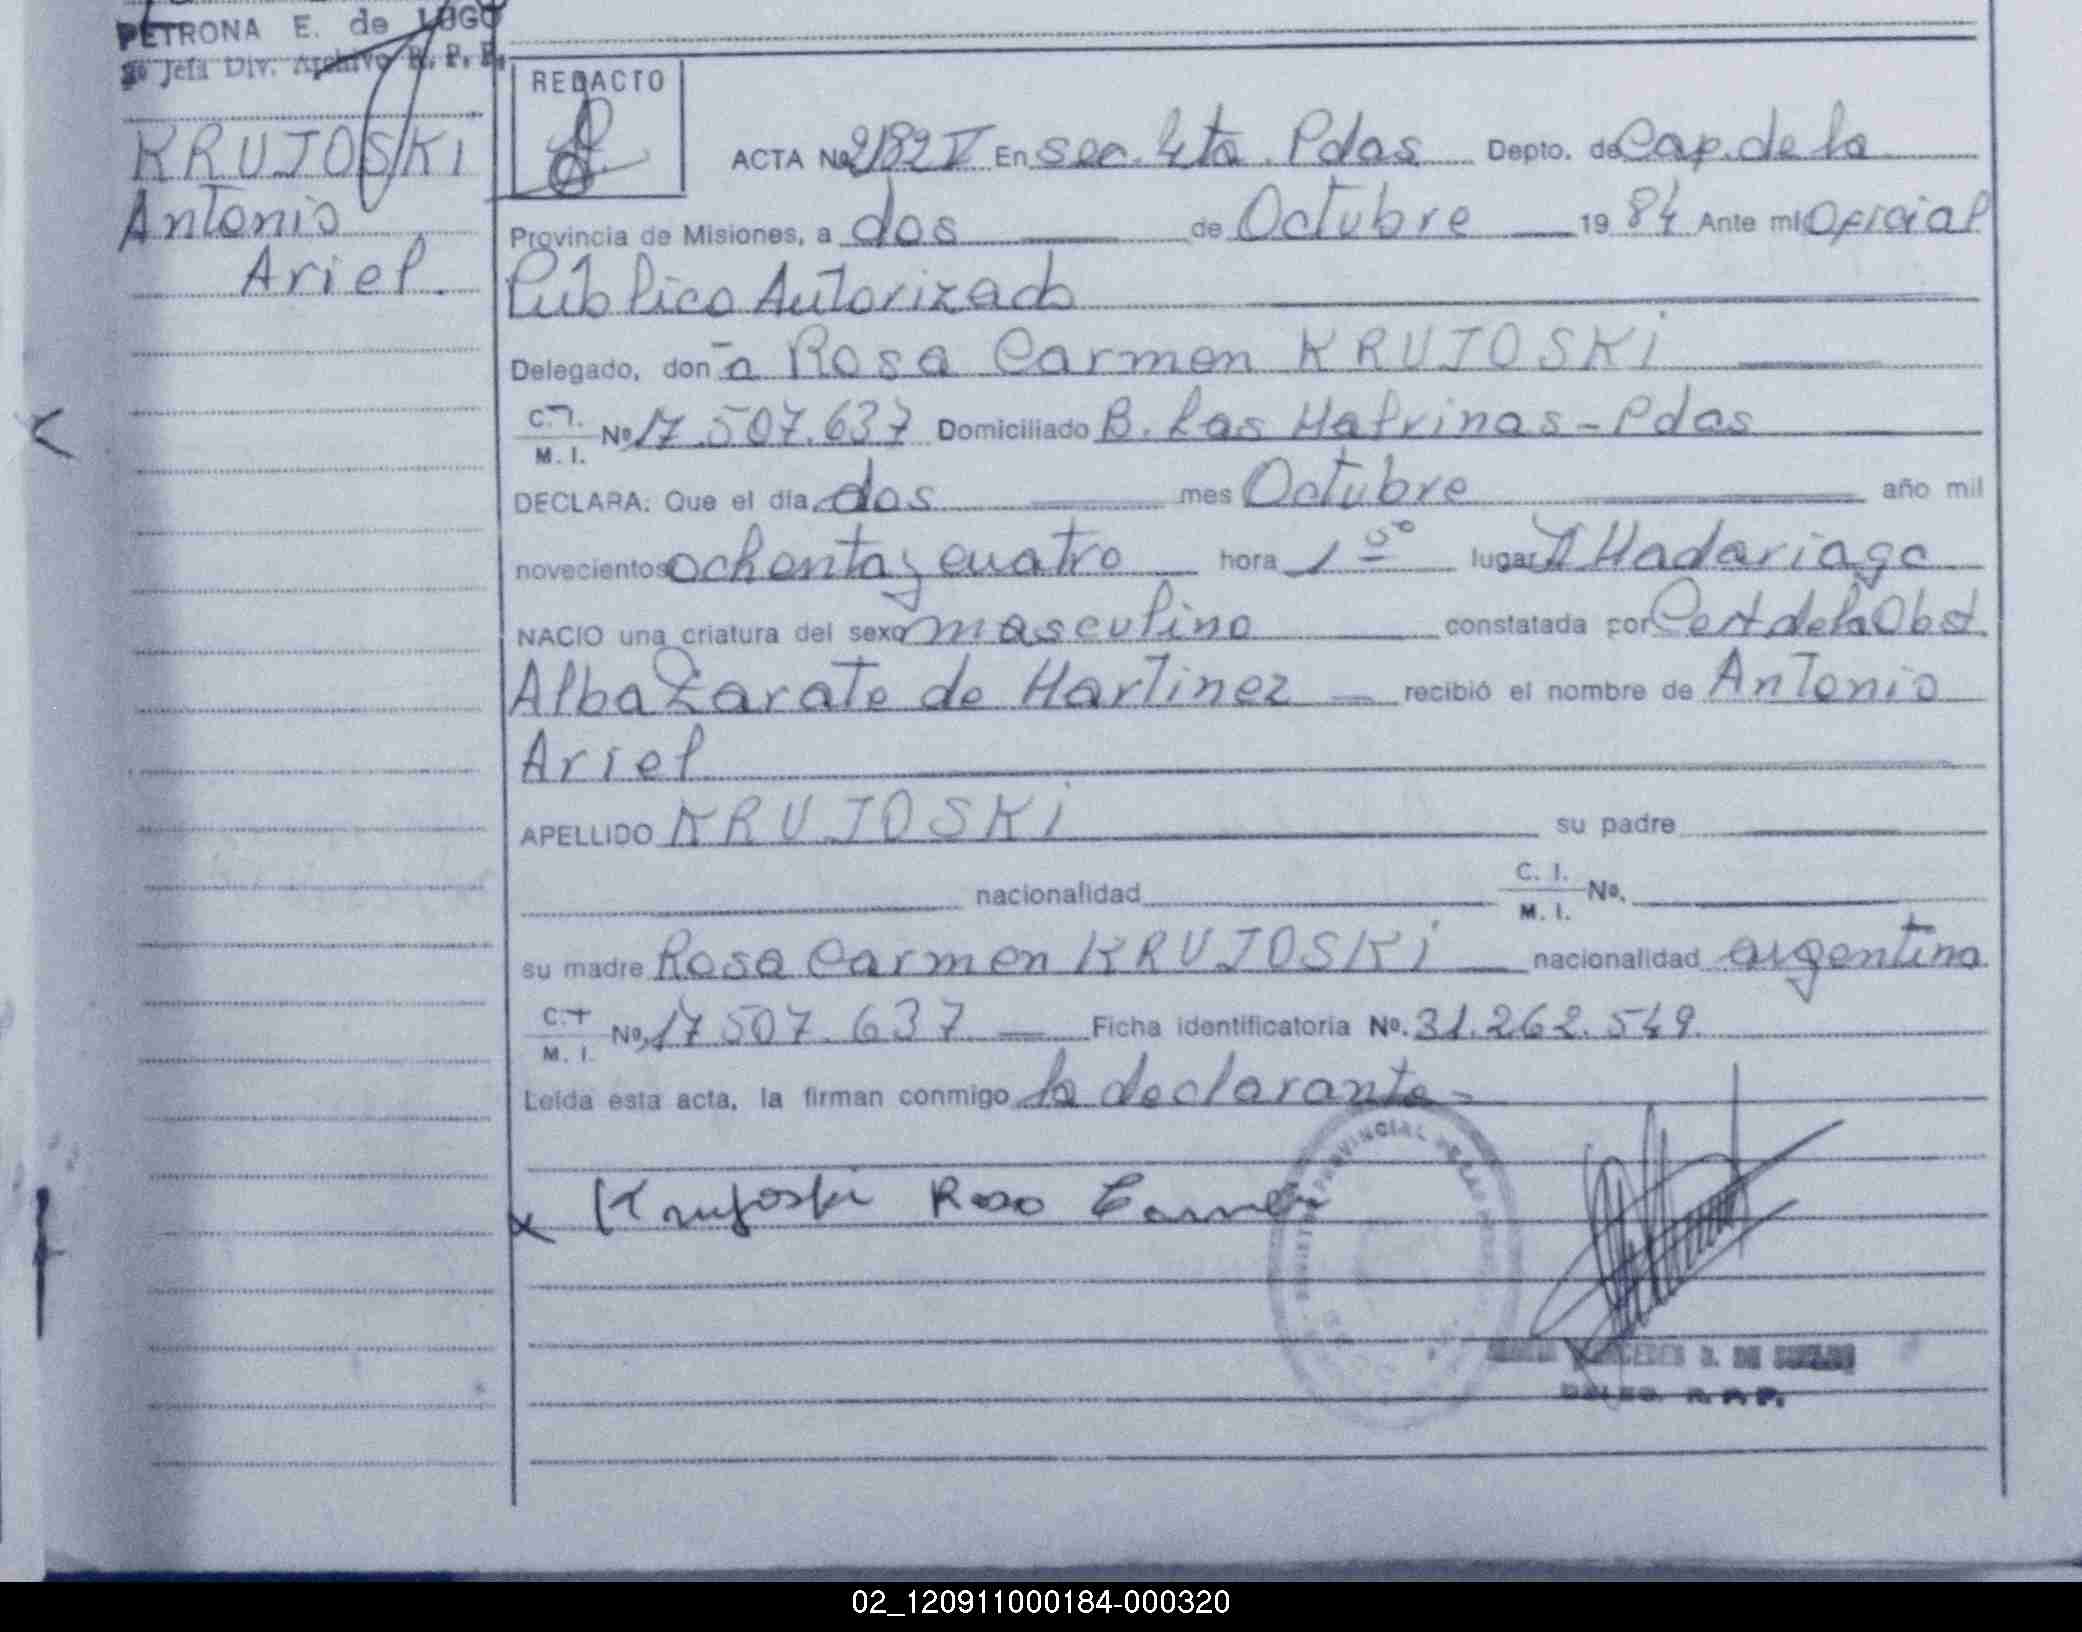 PETRONA E. de LUGO
2º Jefa Div. Archivo R. P. P.
KRUJOSKI
Antonio
Ariel.
REDACTO
ACTA Nº 2182 V En sec. 4ta. Pdas Depto. de Cap. de la
Provincia de Misiones, a dos de Octubre 1984 Ante mi Oficial
Público Autorizado
Delegado, doña Rosa Carmen KRUJOSKI
C. I.
M. I. Nº 17.507.637 Domiciliado B. Las Malvinas - Pdas
DECLARA: Que el día dos mes Octubre año mil
novecientos ochenta y cuatro hora 1 lugar H Madariaga
NACIO una criatura del sexo masculino constatada por Cert de la Obst.
Alba Zarate de Martinez recibió el nombre de Antonio
Ariel
APELLIDO KRUJOSKI su padre
nacionalidad C. I.
M. I. Nº.
su madre Rosa Carmen KRUJOSKI nacionalidad argentina
C. I.
M. I. Nº. 17.507.637 Ficha identificatoria Nº. 31.262.549.
Leída esta acta, la firman conmigo la declarante -
x Krujoski Rosa Carmen
PROVINCIAL DE LAS PERSONAS
MERCEDES DE
DELEG. R. P. P.
02_120911000184-000320